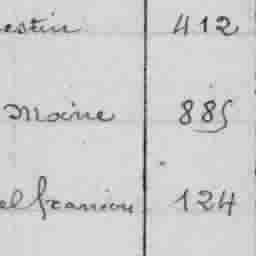 estin 412
Maine 885
elfranion 124